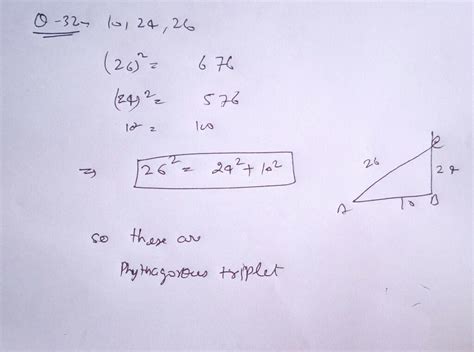 Q-32→ 10, 24, 26
(26)² = 676
(24)² = 576
10² = 100
⇒ 26² = 24² + 10²
C
26
24
A
10
B
so these are
Phythagorous triplet